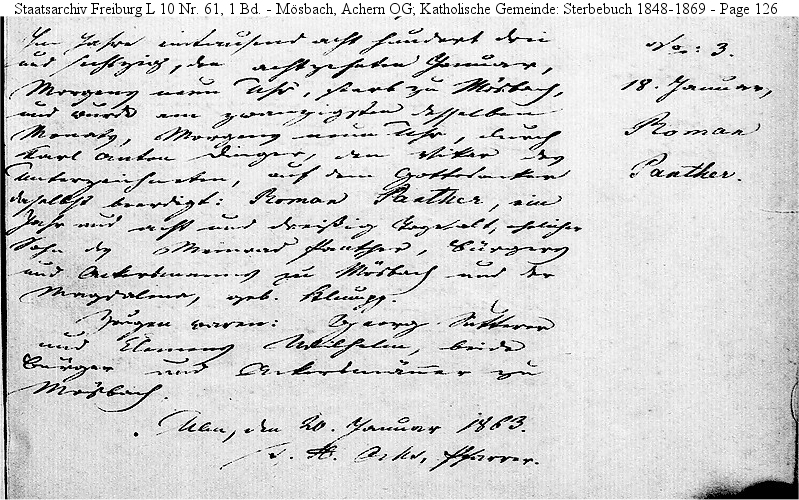 Staatsarchiv Freiburg L 10 Nr. 61, 1 Bd. - Mösbach, Achern OG; Katholische Gemeinde: Sterbebuch 1848-1869 - Page 126
Im Jahre eintausend acht hundert drei
und sechtzig, den achtzehnten Januar,
Morgens neun Uhr, starb zu Mösbach,
und wurde am zwanzigsten desselben
Monats, Morgens neun Uhr, durch
Karl Anton Dinger, dem Vikar des
Unterzeichneten, auf dem Gottesacker
daselbst beerdigt: Roman Panther, ein
Jahr und acht und dreißig Tage alt, ehelicher
Sohn des Meinrad Panther, Bürgers
und Ackersmanns zu Mösbach und der
Magdalena, geb. Klumpp.
Zeugen waren: Georg Sutterer
und Clemens Wilhelm, beide
Bürger und Ackersmänner zu
Mösbach.
Ulm, den 20. Januar 1863.
Pfarrer.
No: 3.
18. Januar,
Roman
Panther.